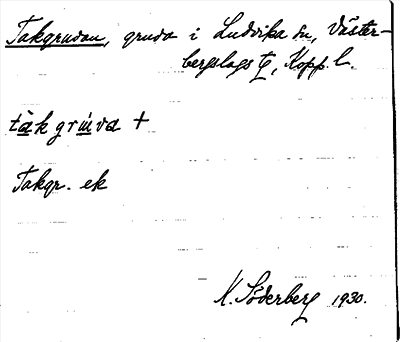 Takgruvan, gruva i Ludvika sn, Väster-
bergslags tg, Kopp. l.
tàk grúva +
Takgr. ek
K. Söderberg 1930.